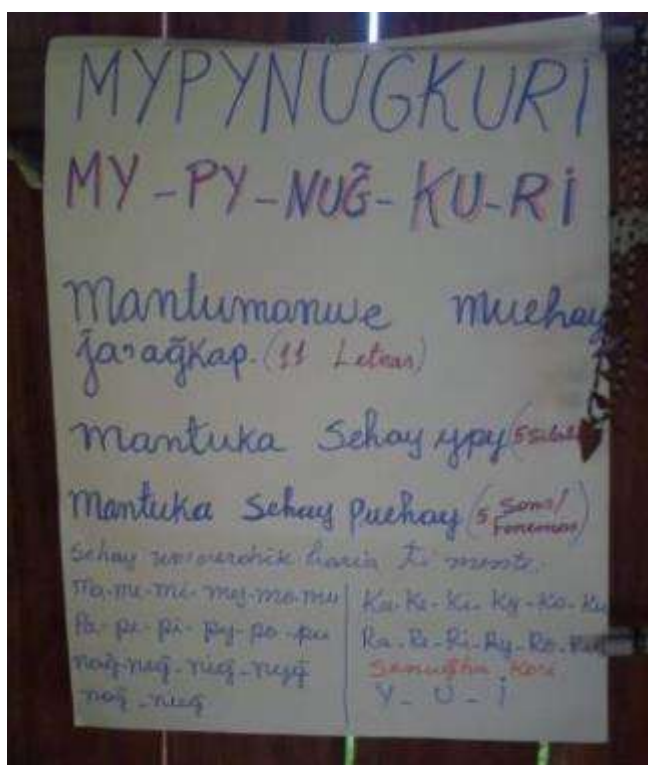 MYPYNUG̃KURI
MY-PY-NUG̃-KU-RI
Mantumanwe muehay
ja'ag̃kap. (11 Letras)
mantuka Sehay ypy (5
Mantuka Sehay puehay (5 Sons/
Fonemas)
Sehay haria ti
Ma-me-mi-my-mo-mu
Pa-pe-pi-py-po-pu
nag̃-neg̃-nig̃-nyg̃
nog̃-nug̃
Ka-Ke-Ki-Ky-Ko-Ku
Ra-Re-Ri-Ry-Ro-Ru
Kori
Y-U-I